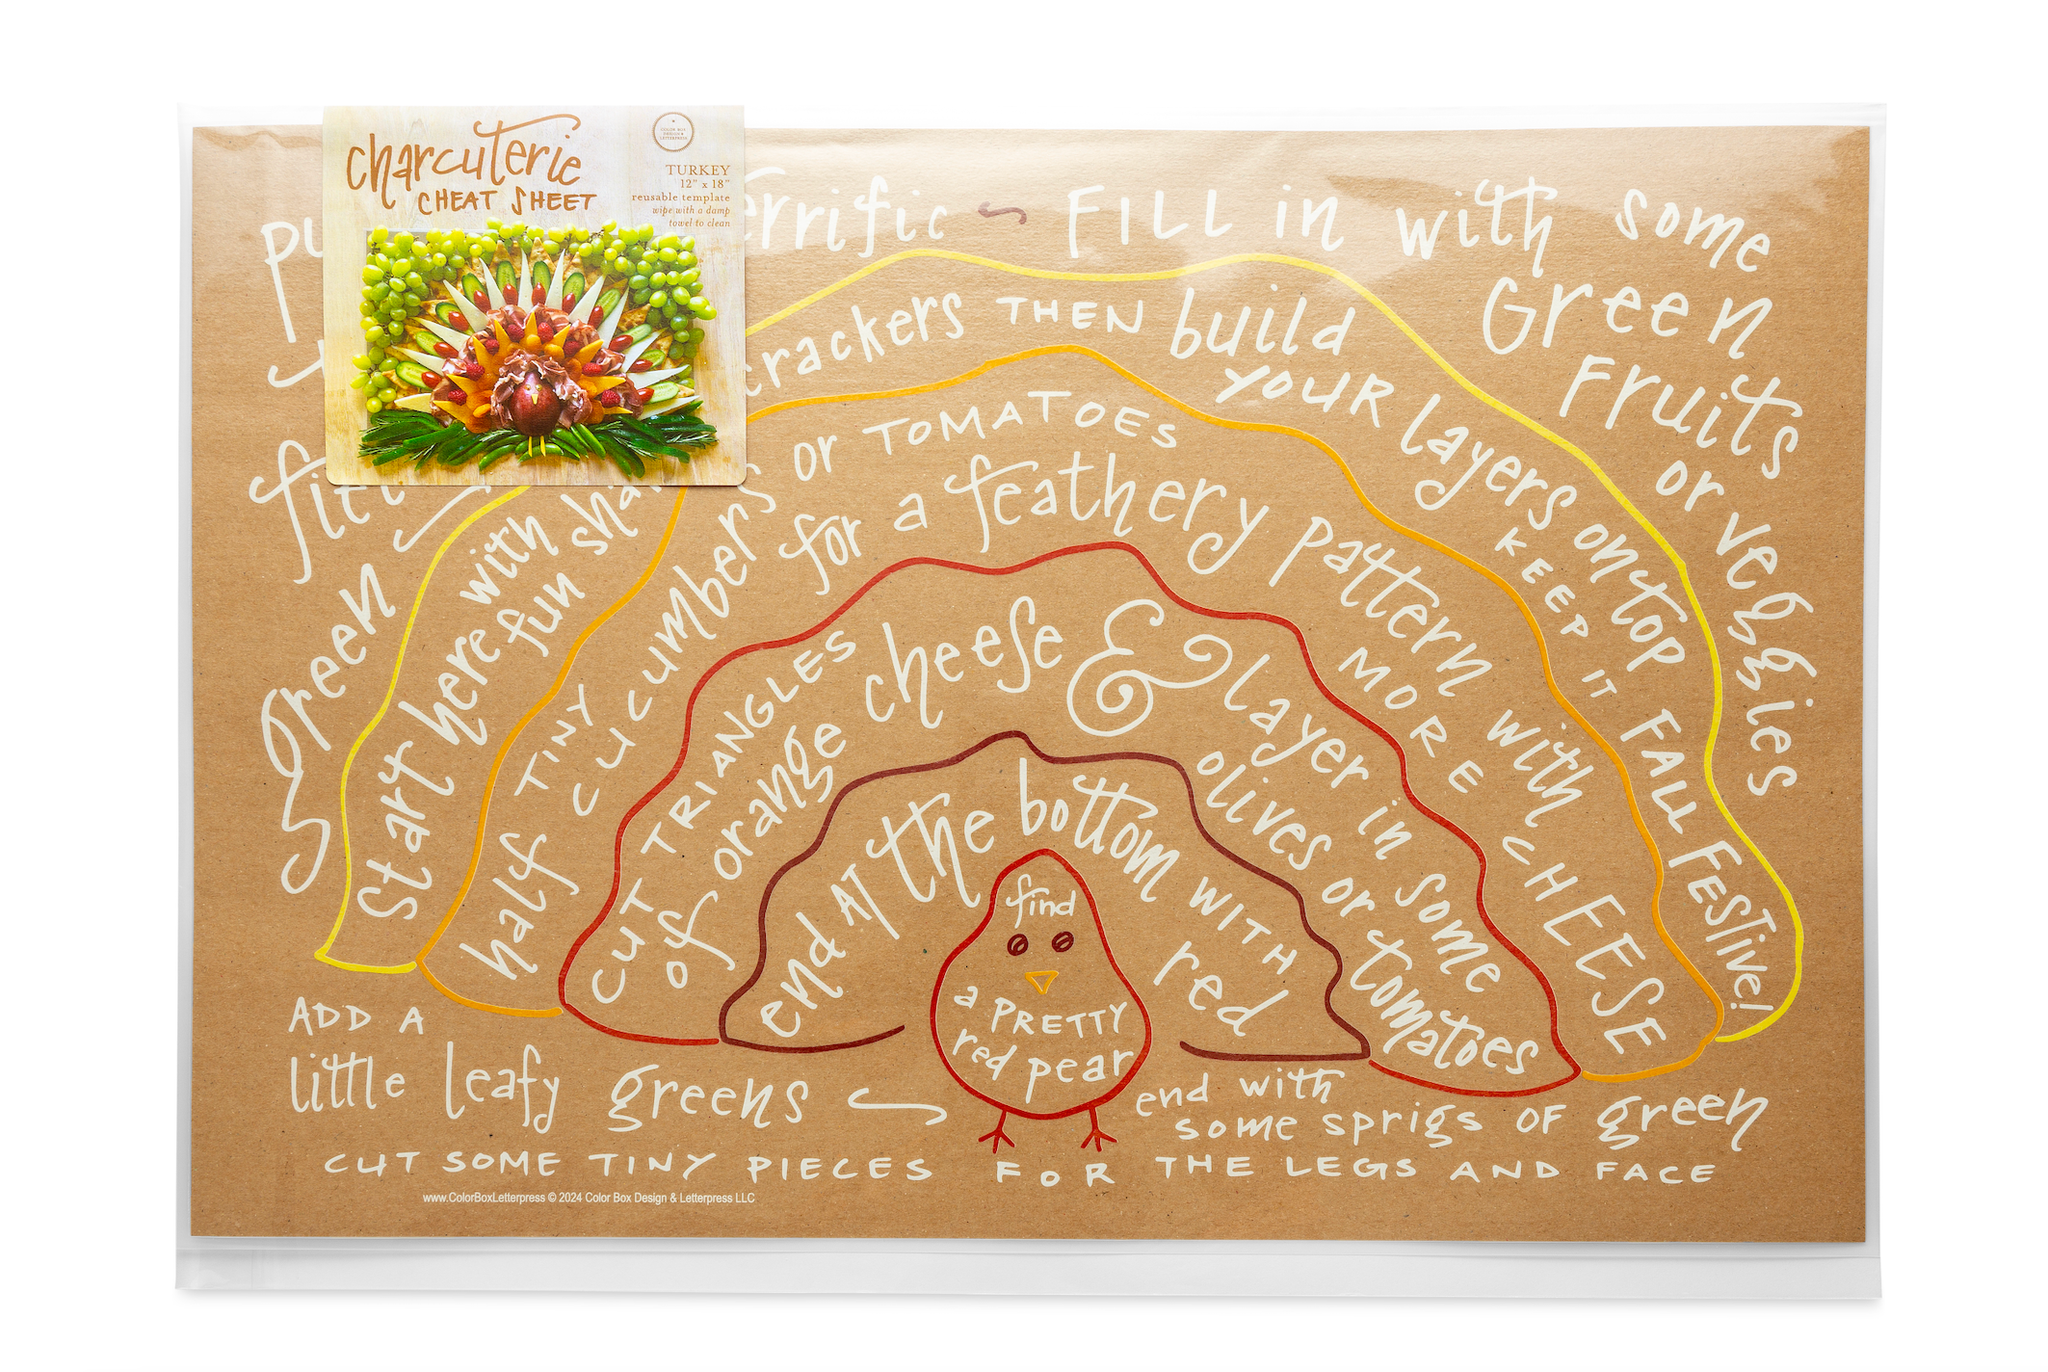 charcuterie
CHEAT SHEET
COLOR BOX
DESIGN &
LETTERPRESS
TURKEY
12" x 18"
reusable template
wipe with a damp
towel to clean
errific ~ FILL in with some
Green
Fruits
or veggies
green
Start here with
fun
rackers THEN build
YOUR layers on top
KEEP IT FALL FESTIVE!
half TINY
CUCUMBERS or TOMATOES
for a feathery pattern with
MORE CHEESE
CUT TRIANGLES
of orange cheese & layer in some
olives or tomatoes
end AT the bottom WITH
red
find
a PRETTY
red pear
ADD A
little leafy greens
end with
some sprigs OF green
CUT SOME TINY PIECES FOR THE LEGS AND FACE
www.ColorBoxLetterpress © 2024 Color Box Design & Letterpress LLC